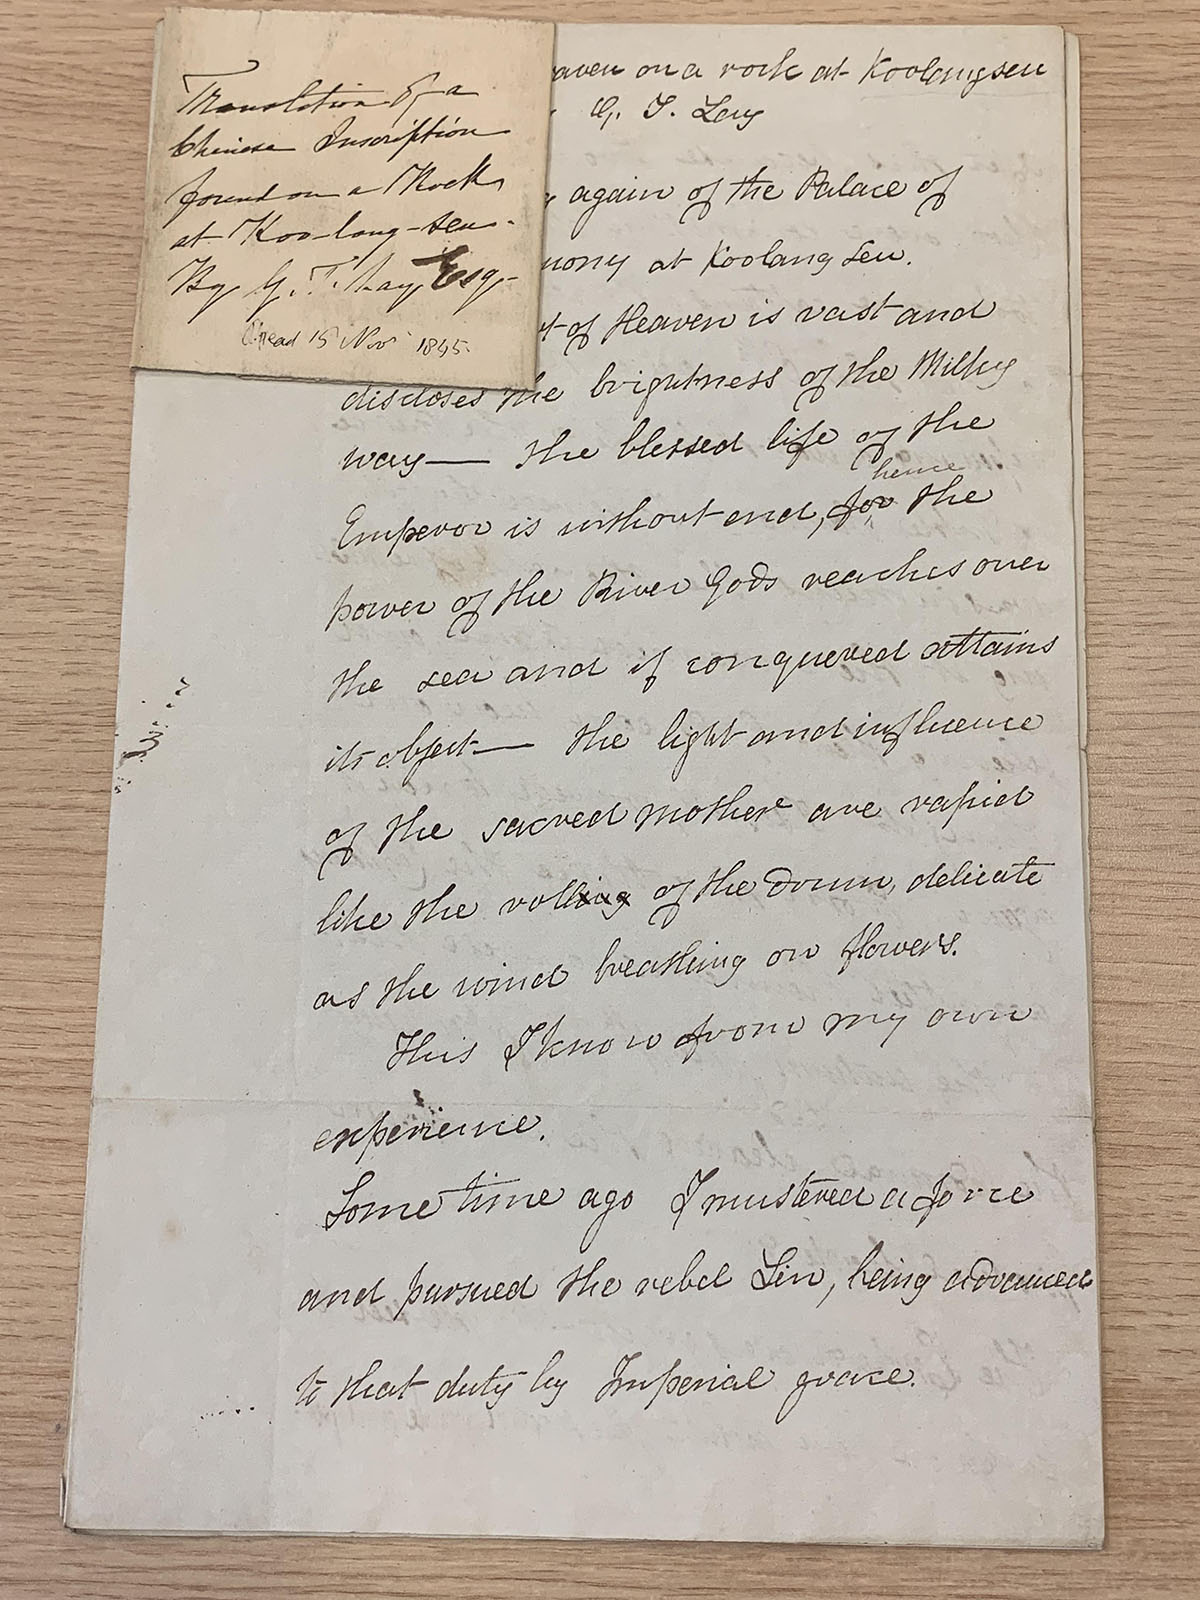 Translation of a
Chinese Inscription
found on a Rock
at Koo-lang-seu.
By G. T. Lay Esqr
read 15 Nov 1845.
raven on a rock at Koolangseu
G. T. Lay
again of the Palace of
mony at Koolang Seu.
t of Heaven is vast and
discloses the brightness of the Milky
way — the blessed life of the
hence
Emperor is without end, for the
power of the River Gods reaches over
the sea and if conquered attains
its object — the light and influence
of the sacred mother are rapid
like the rolling of the down, delicate
as the wind breathing on flowers.
This I know from my own
experience.
Some time ago I mustered a force
and pursued the rebel Lin, being advanced
to that duty by Imperial grace.